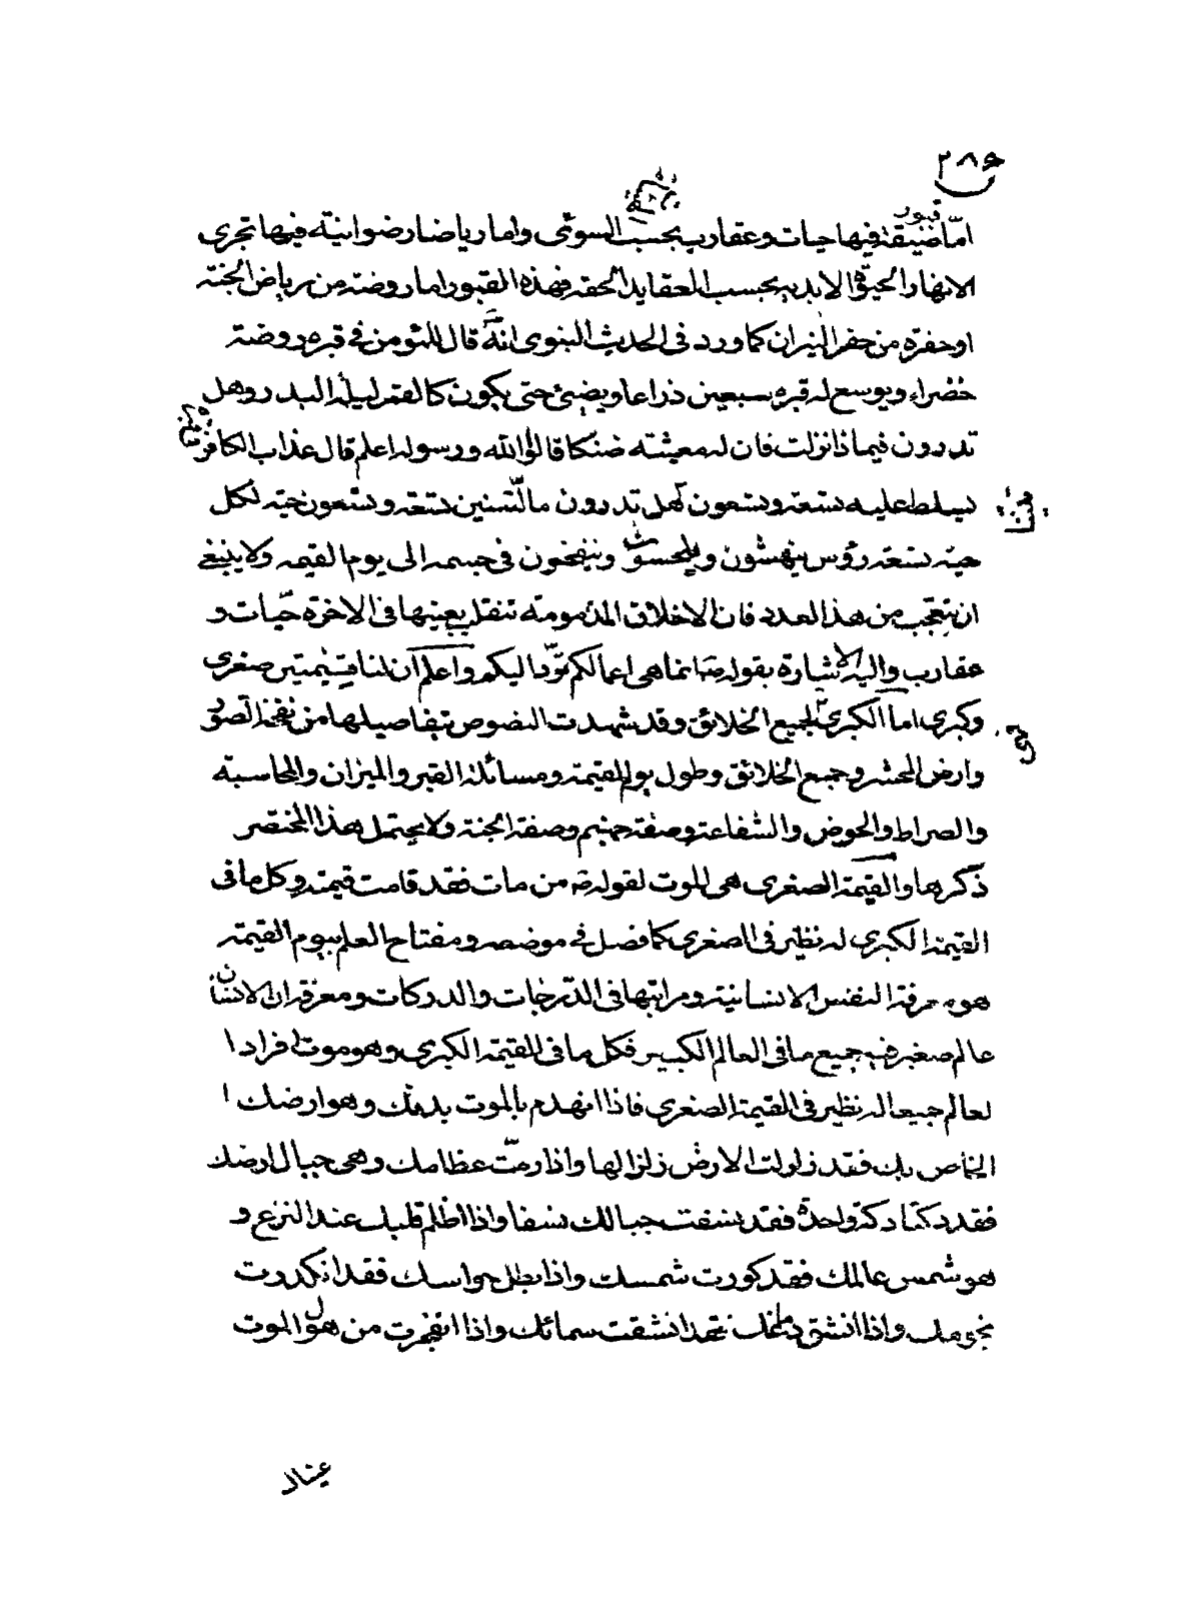 ٢٨٩
قبور
اما ضيقة فيها حيات وعقارب بحسب السوئى واما رياضا رضوانية فيها تجرى
الانهار الحيوة الابدية بحسب العقايد الحقه فهذه القبور اما روضة من رياض الجنة
او حفرة من حفر النيران كما ورد فى الحديث النبوى انه قال المؤمن فى قبره روضة
خضراء ويوسع له قبره سبعين ذراعا ويضئ حتى يكون كالقمر ليلة البدر وهل
تدرون فيماذا نزلت فان له معيشة ضنكا قالوا الله ورسوله اعلم قال عذاب الكافر
يسلط عليه تسعة وتسعون هل تدرون ما التنين تسعة وتسعون حية لكل
حية تسعة رؤس ينهشون ويلحسون وينفخون فى جسمه الى يوم القيمة ولا ينبغى
ان يتعجب من هذا العدد فان الاخلاق المذمومة تنقلب بعينها فى الاخرة حيات و
عقارب واليه الاشارة بقوله انما هى اعمالكم تردّ اليكم واعلم ان لنا قيمتين صغرى
وكبرى اما الكبرى لجميع الخلائق وقد شهدت النصوص بتفاصيلها من نفخة الصور
وارض المحشر وجميع الخلائق وطول يوم القيمة ومسائلة القبر والميزان والمحاسبة
والصراط والحوض والشفاعة وصفة جهنم وصفة الجنة ولا يحتمل هذا المختصر
ذكرها والقيمة الصغرى هى الموت لقوله من مات فقد قامت قيمته وكل ما فى
القيمة الكبرى له نظير فى الصغرى كما فصل فى موضعه ومفتاح العلم بيوم القيمة
هو معرفة النفس الانسانية ومراتبها فى الدرجات والدركات ومعرفة ان الانسان
عالم صغير فيه جميع ما فى العالم الكبير فكل ما فى القيمة الكبرى وهو موت افراد ا
لعالم جميعا له نظير فى القيمة الصغرى فاذا انهدم بالموت بدنك وهو ارضك ا
الخاص بك فقد زلزلت الارض زلزالها واذا رمّت عظامك وهى جبال ارضك
فقد دكتا دكة واحدة فقد نسفت جبالك نسفا واذا اظلم قلبك عند النزع و
هو شمس عالمك فقد كورت شمسك واذا بطل حواسك فقد انكدرت
نجومك واذا انشق دماغك فقد انشقت سمائك واذا انفجرت من هول الموت